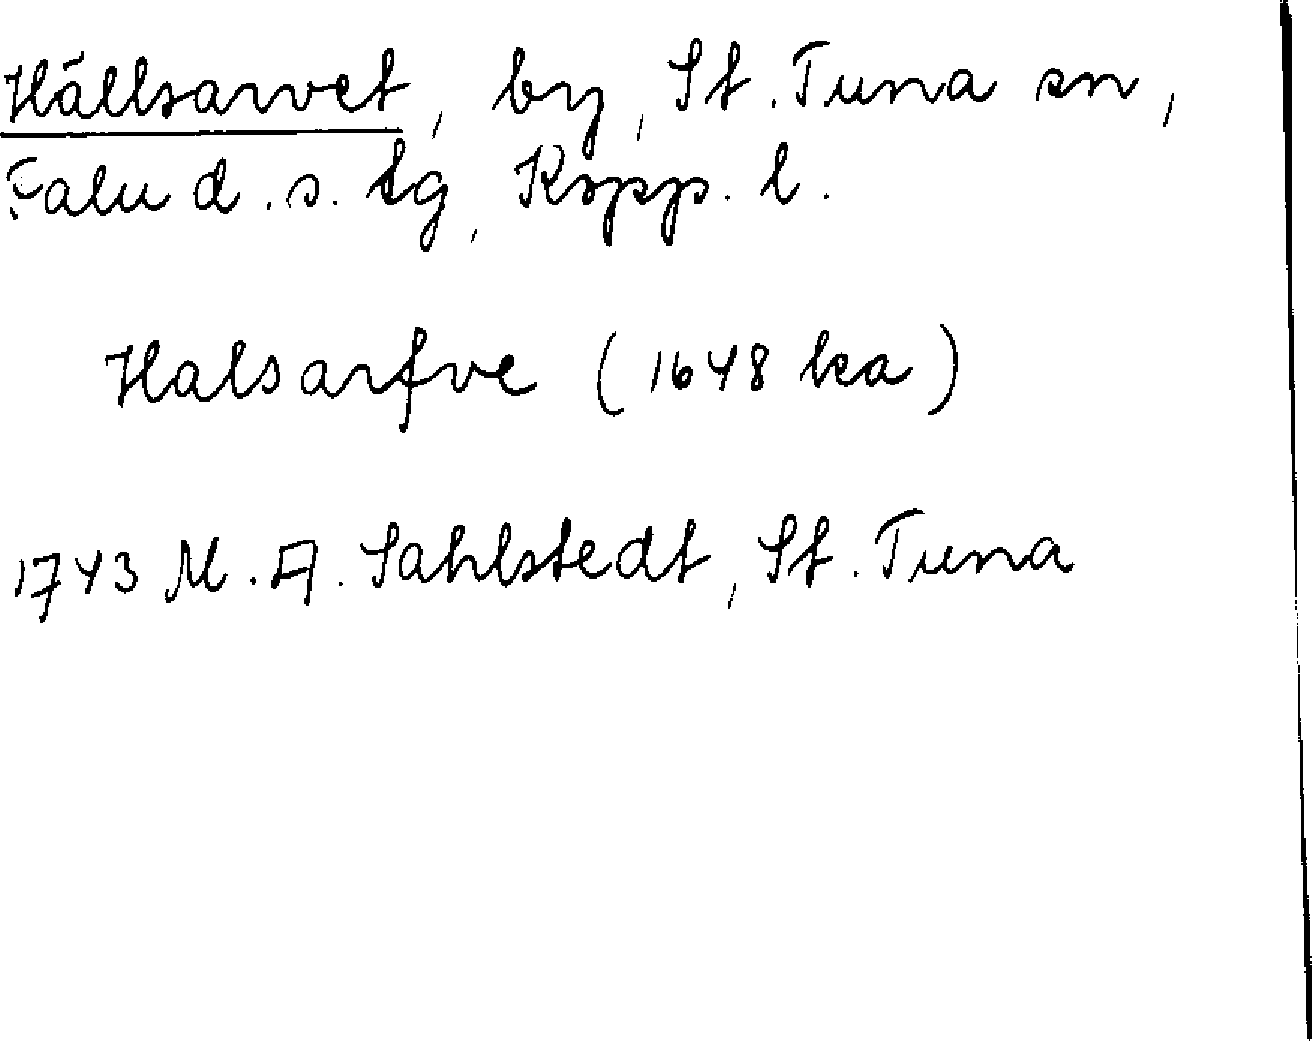 Hällsarvet, by, St. Tuna sn,
Falu d. s. tg, Kopp. l.
Halsarfve (1648 ka)
1743 M. A. Sahlstedt, St. Tuna